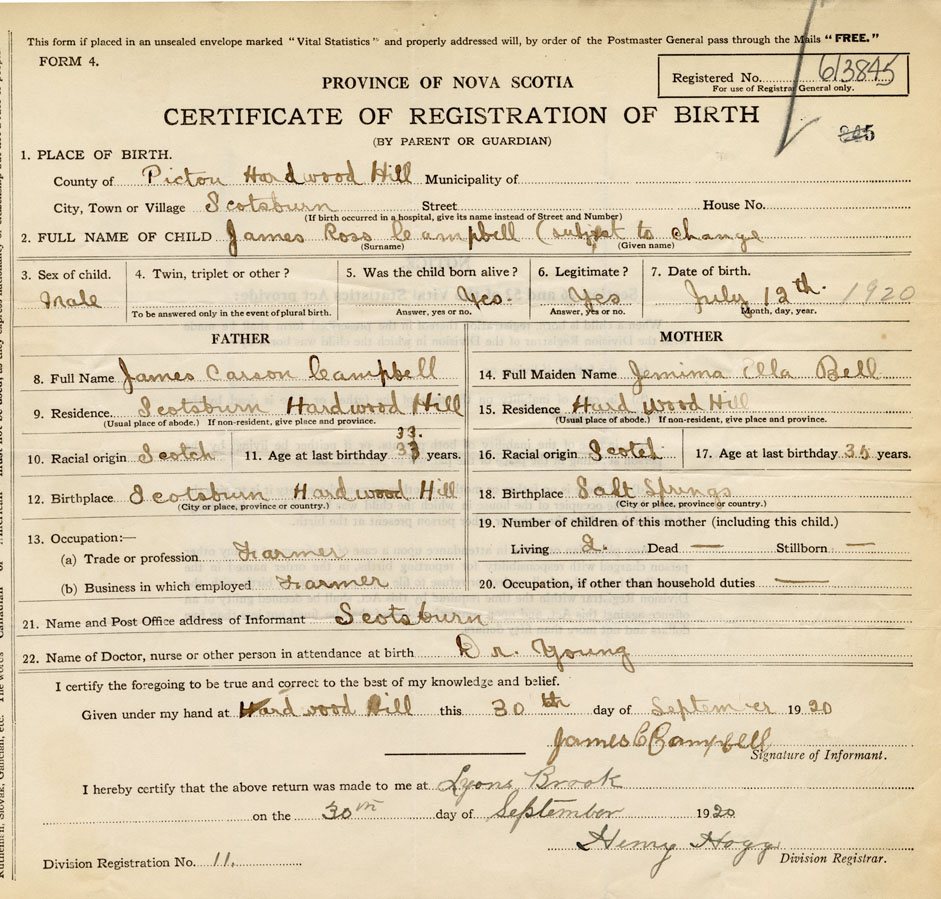 This form if placed in an unsealed envelope marked "Vital Statistics" and properly addressed will, by order of the Postmaster General pass through the Mails "FREE."
FORM 4.
Registered No. 613845
For use of Registrar General only.
PROVINCE OF NOVA SCOTIA
CERTIFICATE OF REGISTRATION OF BIRTH
(BY PARENT OR GUARDIAN)
1. PLACE OF BIRTH.
County of Pictou Hardwood Hill Municipality of
City, Town or Village Scotsburn Street House No.
(If birth occurred in a hospital, give its name instead of Street and Number)
2. FULL NAME OF CHILD James Ross Campbell (subject to change
(Surname) (Given name)
3. Sex of child. 4. Twin, triplet or other? 5. Was the child born alive? 6. Legitimate? 7. Date of birth.
Male Yes. Yes July 12th. 1920
To be answered only in the event of plural birth. Answer, yes or no. Answer, yes or no. Month, day, year.
FATHER MOTHER
8. Full Name James Carson Campbell 14. Full Maiden Name Jemima Ella Bell
9. Residence. Scotsburn Hardwood Hill 15. Residence Hard wood Hill
(Usual place of abode.) If non-resident, give place and province. (Usual place of abode.) If non-resident, give place and province.
33.
10. Racial origin Scotch 11. Age at last birthday 33 years. 16. Racial origin Scotch 17. Age at last birthday 35 years.
12. Birthplace Scotsburn Hardwood Hill 18. Birthplace Salt Springs
(City or place, province or country.) (City or place, province or country.)
13. Occupation:— 19. Number of children of this mother (including this child.)
(a) Trade or profession Farmer Living 2. Dead — Stillborn —
(b) Business in which employed Farmer 20. Occupation, if other than household duties —
21. Name and Post Office address of Informant Scotsburn
22. Name of Doctor, nurse or other person in attendance at birth Dr. Young
I certify the foregoing to be true and correct to the best of my knowledge and belief.
Given under my hand at Hard wood Hill this 30th day of September 1920
James C Campbell
Signature of Informant.
I hereby certify that the above return was made to me at Lyons Brook
on the 30th day of September 1920
Henry Hogg
Division Registration No. 11. Division Registrar.